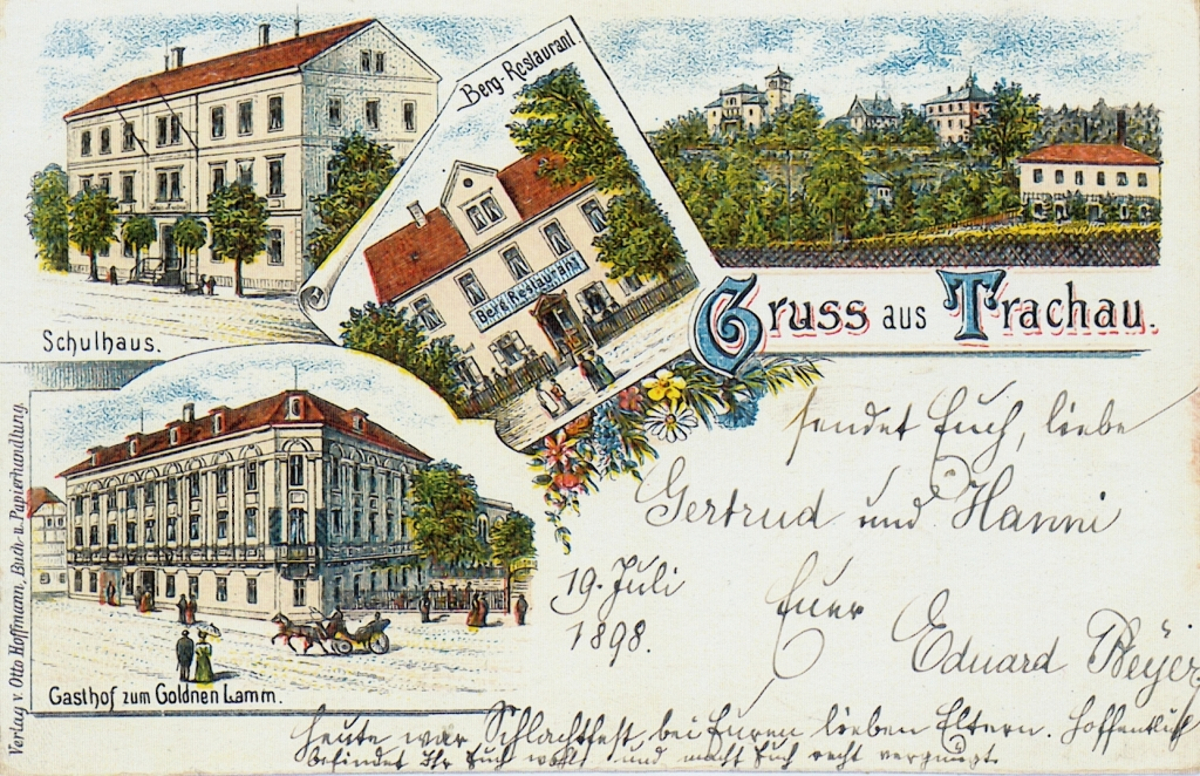 Berg-Restaurant.
Berg Restaurant
Schulhaus.
Gruss aus Trachau.
sendet Euch, liebe
Gertrud und Hanni
19. Juli
1898.
Euer
Eduard
Gasthof zum Goldnen Lamm.
Verlag v. Otto Hoffmann, Buch- u. Papierhandlung.
Heute war Schlachtfest bei Euren lieben Eltern. Hoffentlich
befindet Ihr Euch wohl und macht Euch recht vergnügt.